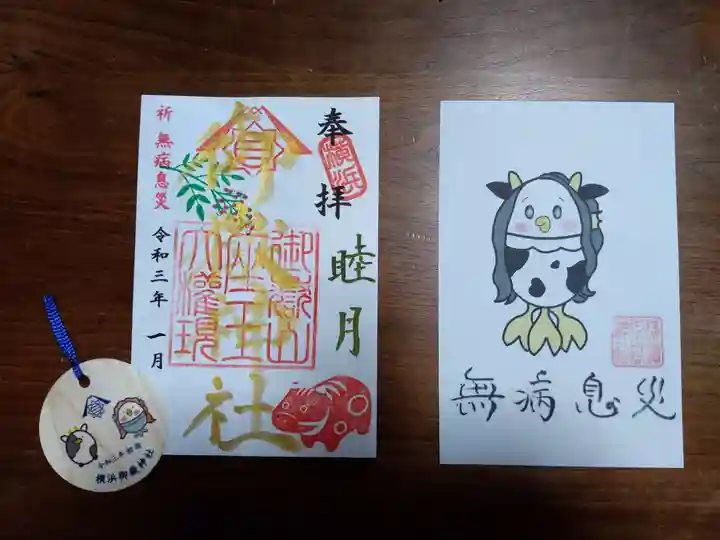 奉拝
横浜
睦月
御嶽神社
御嶽山
座王
大権現
祈 無病息災
令和三年 一月
無病息災
令和三年 初詣
横浜御嶽神社